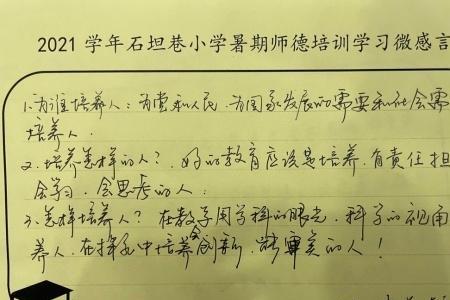 2021 学年石坦巷小学暑期师德培训学习微感言
1.为谁培养人：为党和人民.为国家发展的需要和社会需
培养人.
2.培养怎样的人？.好的教育应该是培养.有责任担
会学习.会思考的人.
3.怎样培养人？在教学用学科的眼光.科学的视角
养人.在探究中培养会创新.能 的人！